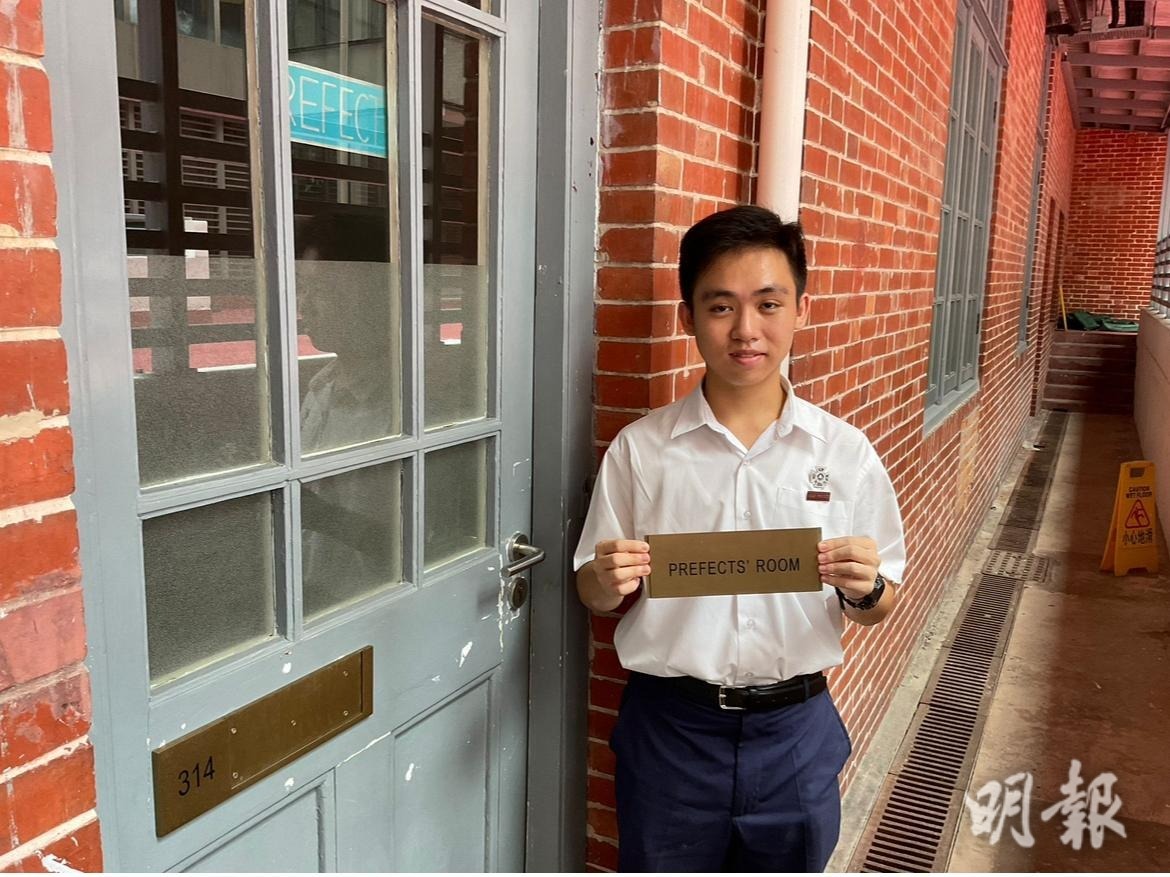 REFECT
PREFECTS' ROOM
314
CAUTION
WET FLOOR
小心地滑
明報